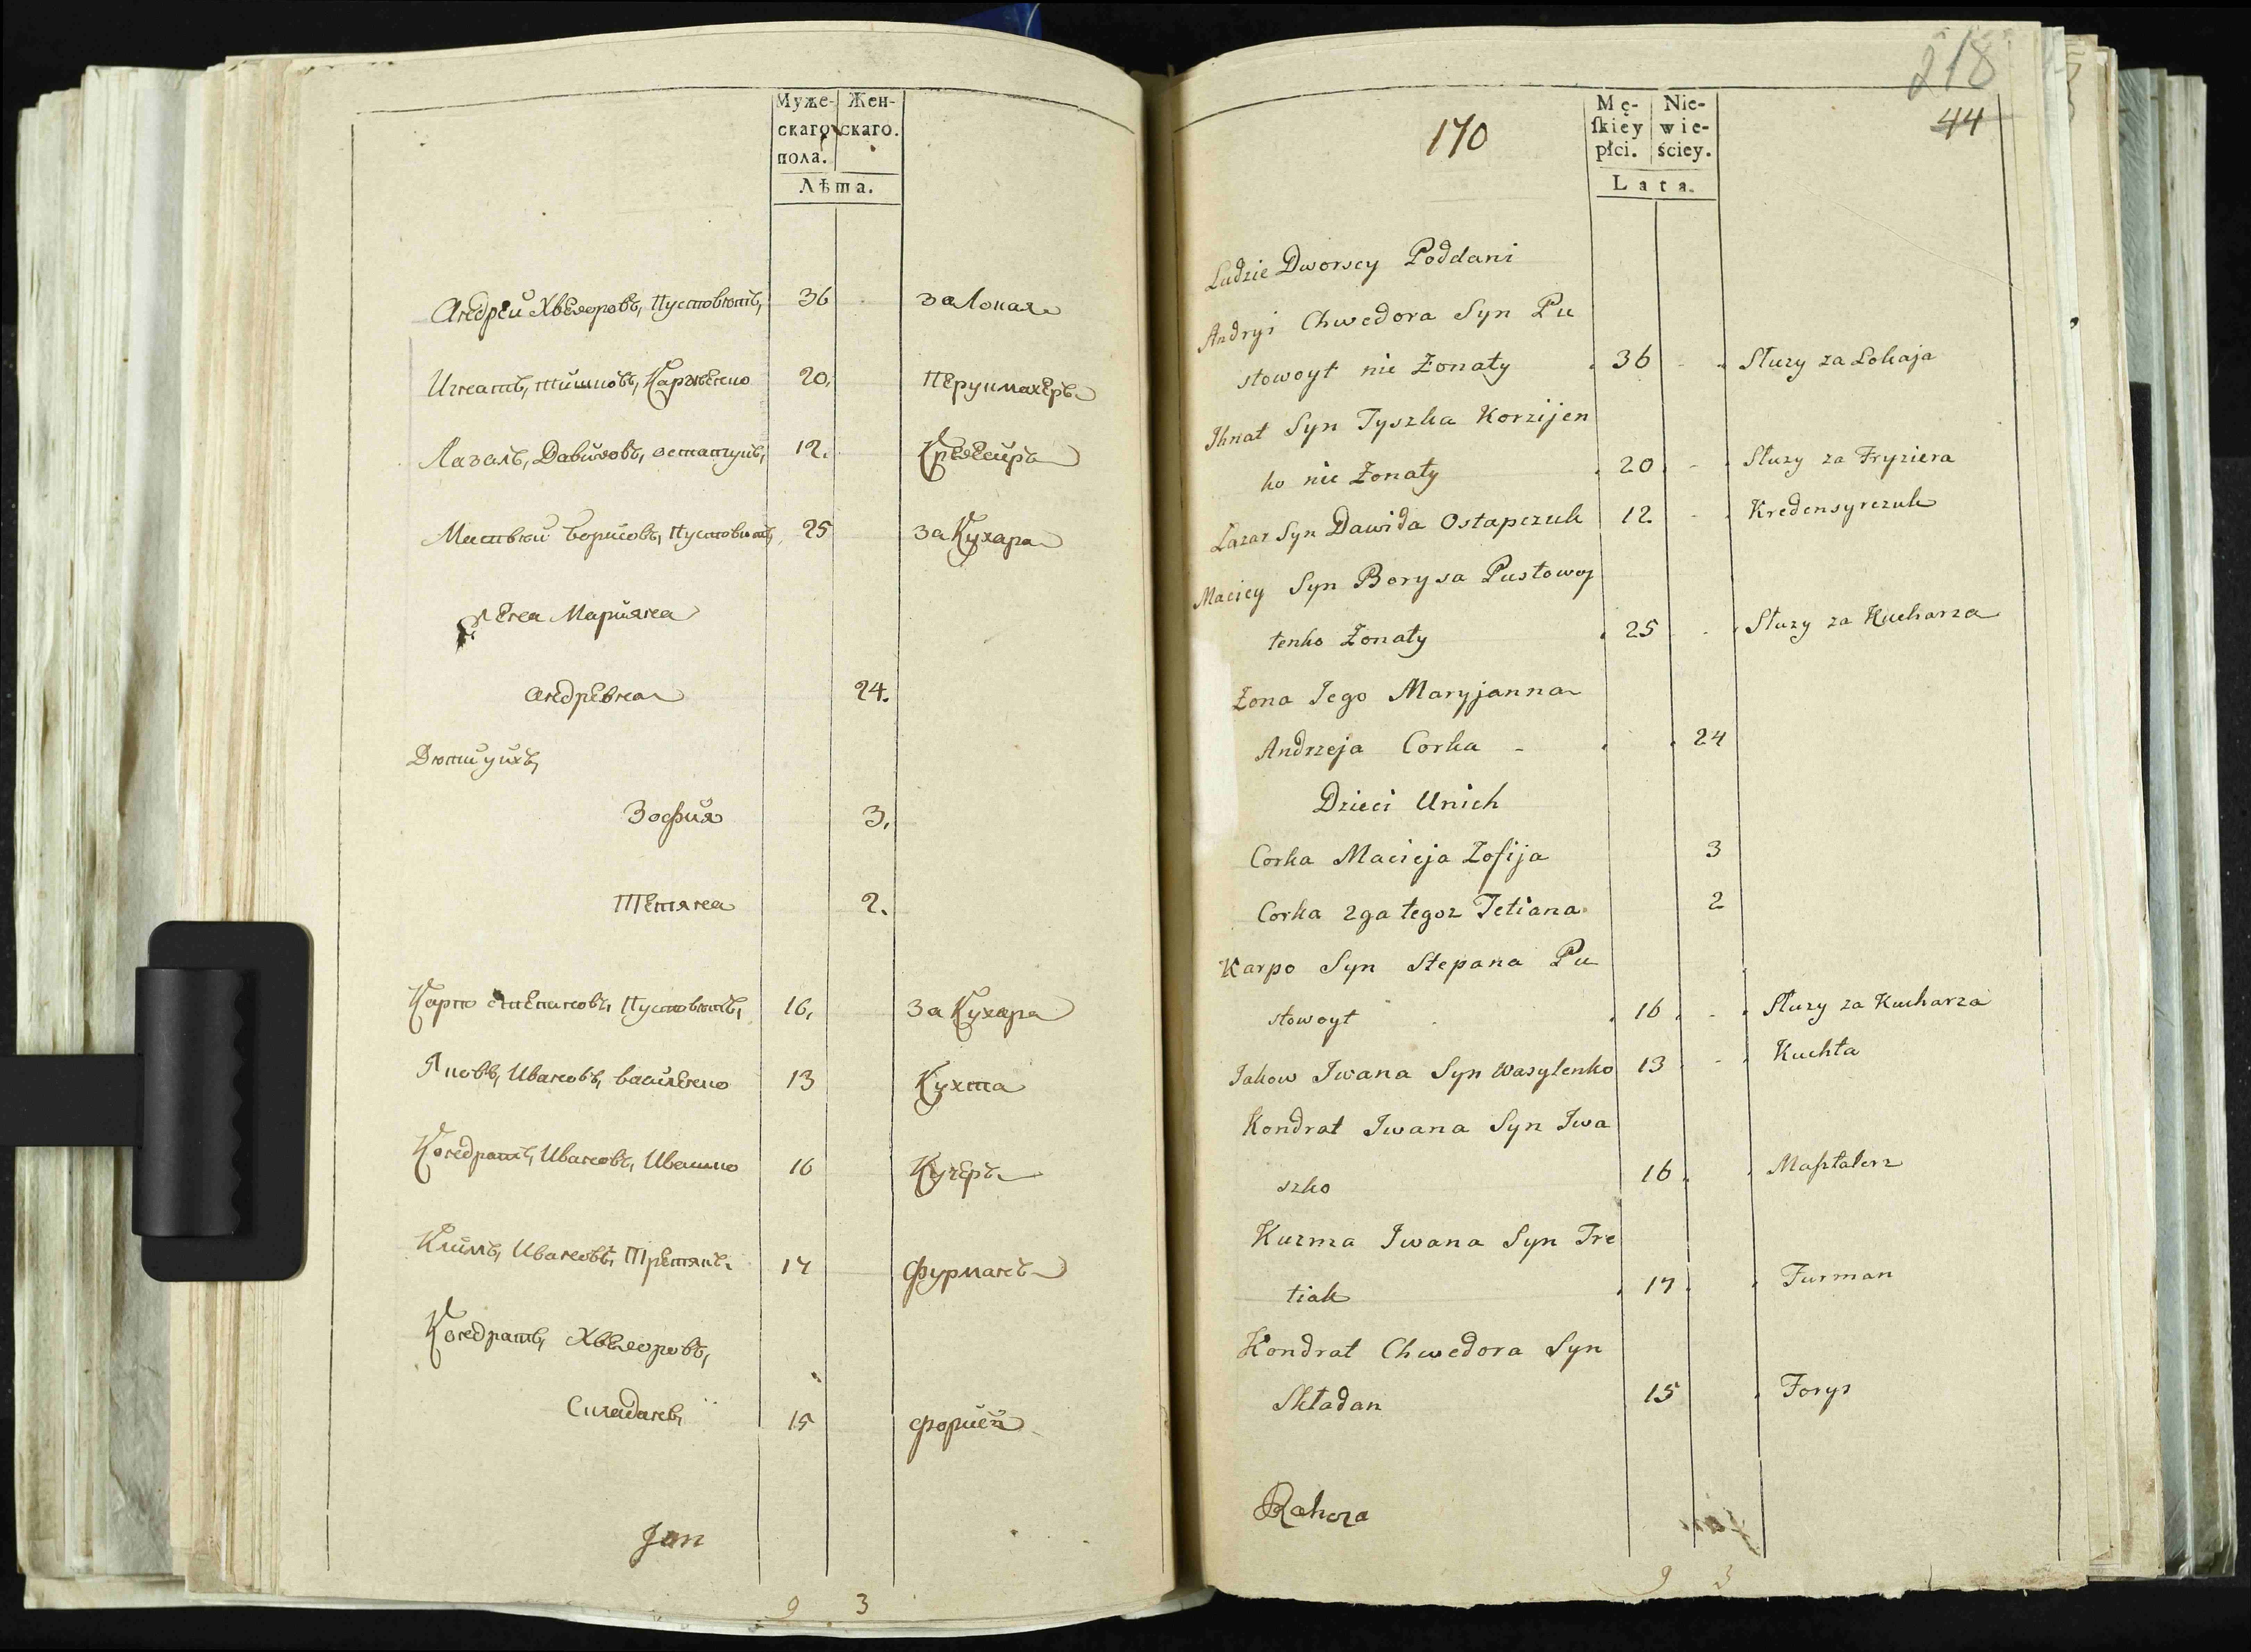 Муже- Жен-
скаго скаго.
пола.
Лѣта.
Андрей Хведоровъ, Пустовютъ, 36 за Локая
Игнатъ, тишковъ, Карженко 20, перукмахеръ
Лазаль, Давидовъ, остапчукъ, 12.
Мватвюй Борисовъ, Пустовютъ, 25 за Кухара
Жена Марияна
андревна 24.
Дюти уихъ,
Зофия 3,
Тетяна 2.
Карпо степановъ, Пустовютъ, 16, за Кухара
Яковъ, Ивановъ, василенко 13 Кухта
Кондратъ, Ивановъ, Ивашко 16 Кучеръ
Климъ, Ивановъ, Третякъ. 17 фурманъ
Кондратъ, Хведоровъ,
Складанъ, 15
Jan
9 3
218
44
170
Mę- Nie-
ſkiey wie-
płci. ściey.
Lata.
Ludzie Dworscy Poddani
Andryi Chwedora Syn Pu
stowoyt nie Żonaty 36 Służy za Lokaja
Ihnat Syn Tyszka Korzijen
ko nie Żonaty 20 Służy za Fryziera
Lazar Syn Dawida Ostapczuk 12 Kredensyrczuk
Maciey Syn Borysa Pustowoy
tenko Żonaty 25 Służy za Kucharza
Żona Jego Maryjanna
Andrzeja Corka 24
Dzieci Unich
Corka Macieja Zofija 3
Corka 2ga tegoz Tetiana 2
Karpo Syn Stepana Pu
stowoyt 16 Służy za Kucharza
Jakow Iwana Syn Wasylenko 13 Kuchta
Kondrat Iwana Syn Iwa
szko 16 Masztalerz
Kuzma Iwana Syn Tre
tiak 17 Furman
Kondrat Chwedora Syn
Składan 15 Foryś
Rahoza
9 3